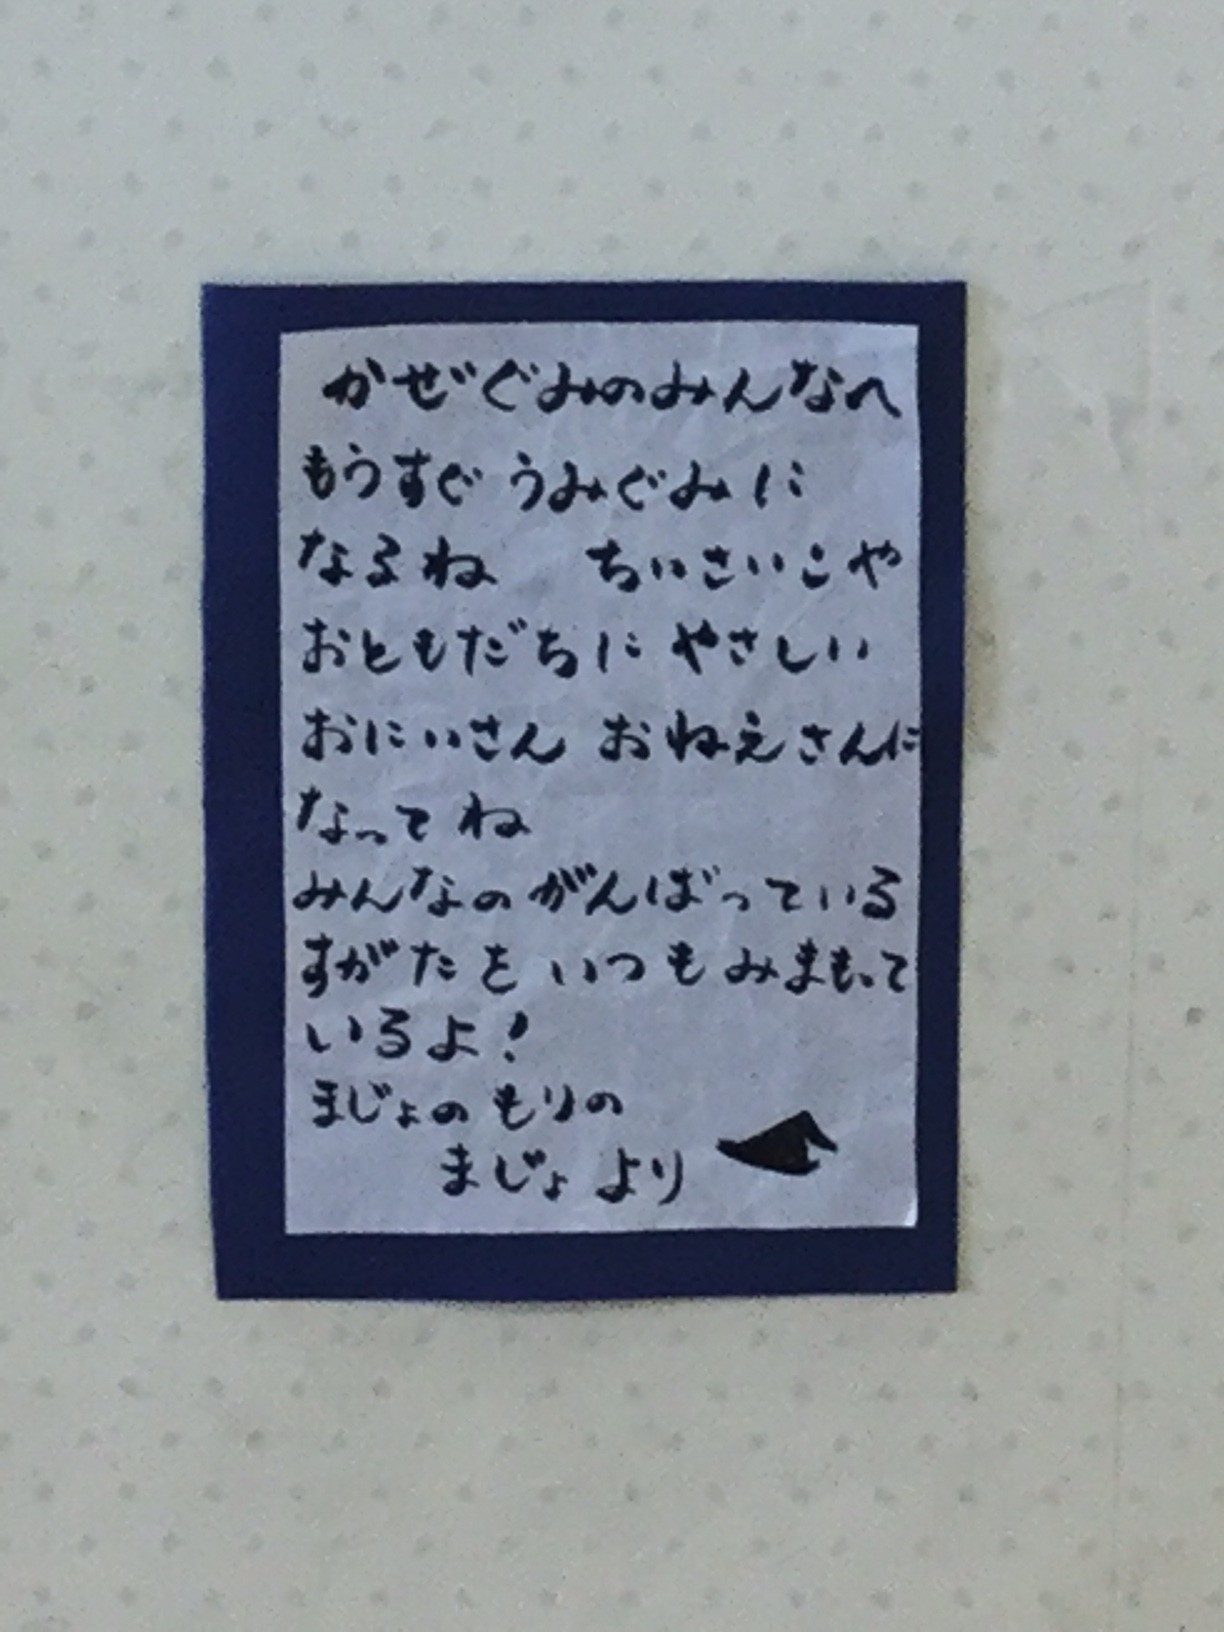 かぜぐみのみんなへ
もうすぐ うみぐみに
なるね　ちいさいこや
おともだちに やさしい
おにいさん おねえさんに
なってね
みんなのがんばっている
すがたを いつも みまもって
いるよ！
まじょの もりの
まじょ より